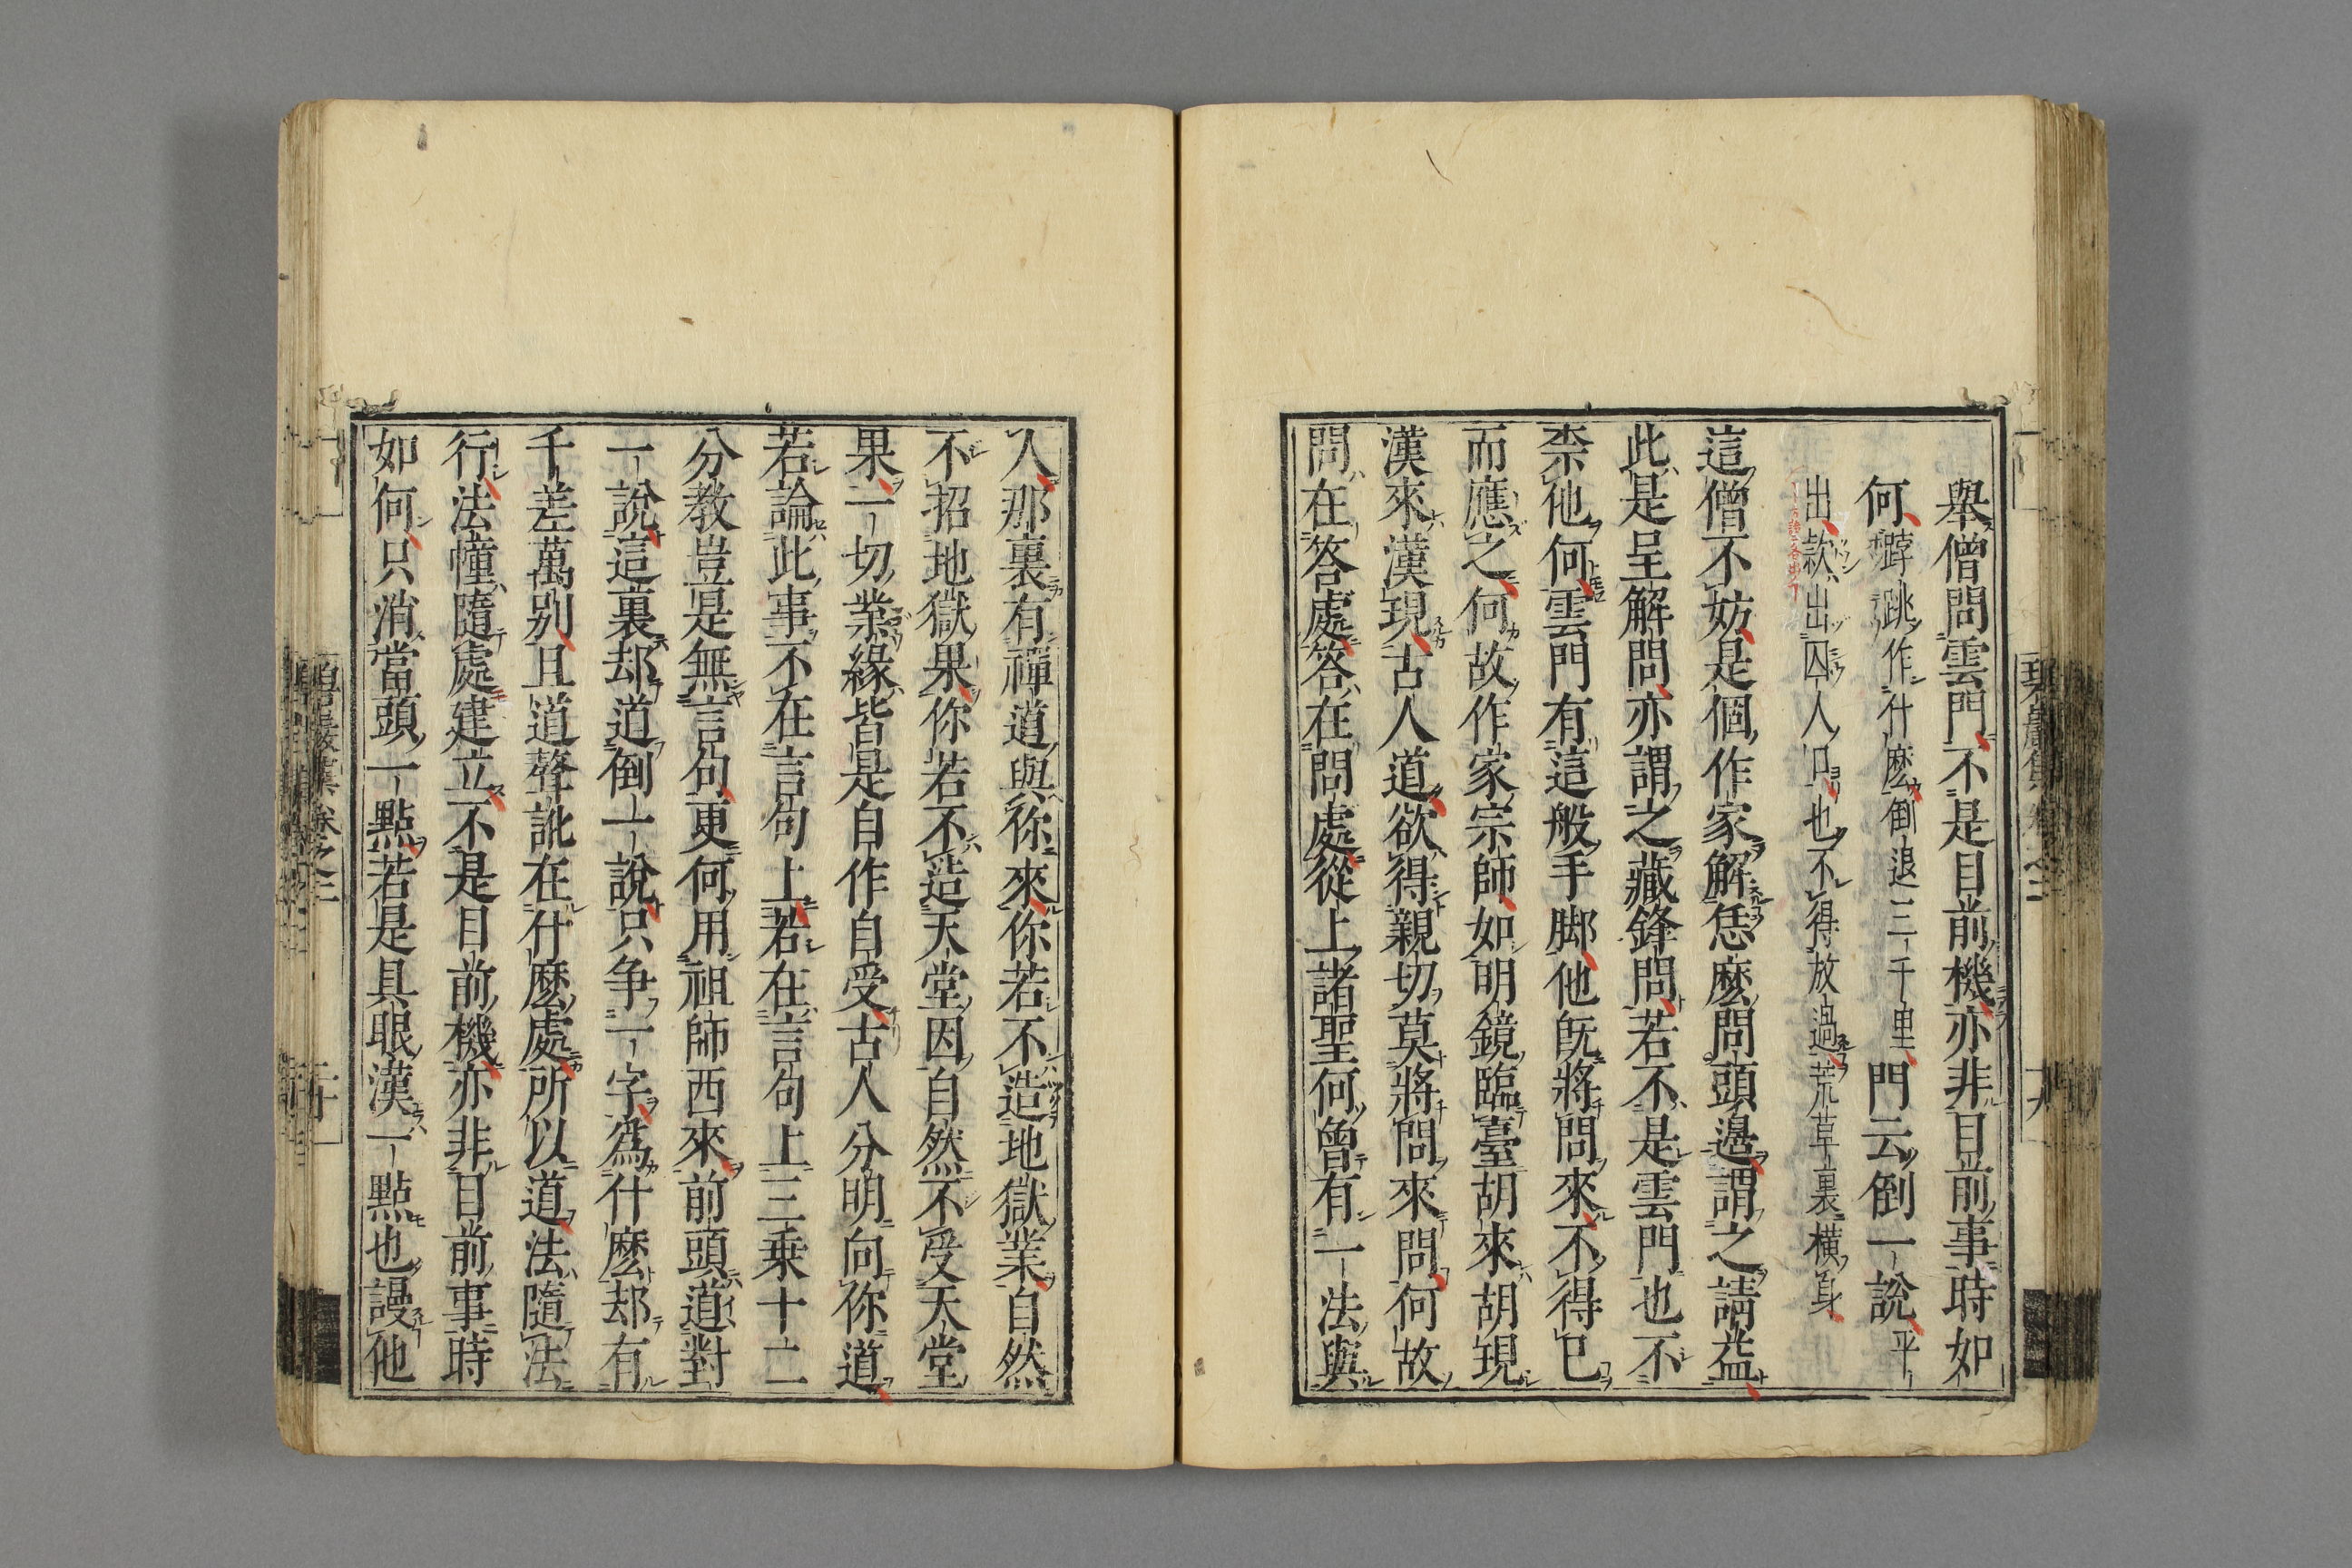 舉僧問雲門不是目前機亦非目前事時如
何𨁝跳作什麽倒退三千里門云倒一說平
出款出囚人口也不得放過荒草裏橫身
這僧不妨是個作家解恁麽問頭邊謂之請益
此是呈解問亦謂之藏鋒問若不是雲門也不
柰他何雲門有這般手脚他旣將問來不得已
而應之何故作家宗師如明鏡臨臺胡來胡現
漢來漢現古人道欲得親切莫將問來問何故
問在答處答在問處從上諸聖何曾有一法與
人那裏有禪道與你來你若不造地獄業自然
不招地獄果你若不造天堂因自然不受天堂
果一切業緣皆是自作自受古人分明向你道
若論此事不在言句上若在言句上三乗十二
分教豈是無言句更何用祖師西來前頭道對
一說這裏却道倒一說只争一字爲什麽却有
千差萬别且道聱訛在什麽處所以道法隨法
行法幢隨處建立不是目前機亦非目前事時
如何只消當頭一點若是具眼漢一點也謾他